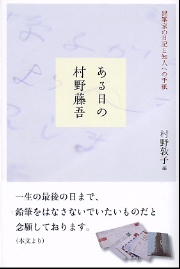 建築家の日記と知人への手紙
ある日の
村野藤吾
村野敦子 編
一生の最後の日まで、
鉛筆をはなさないでいたいものだと
念願しております。
(本文より)